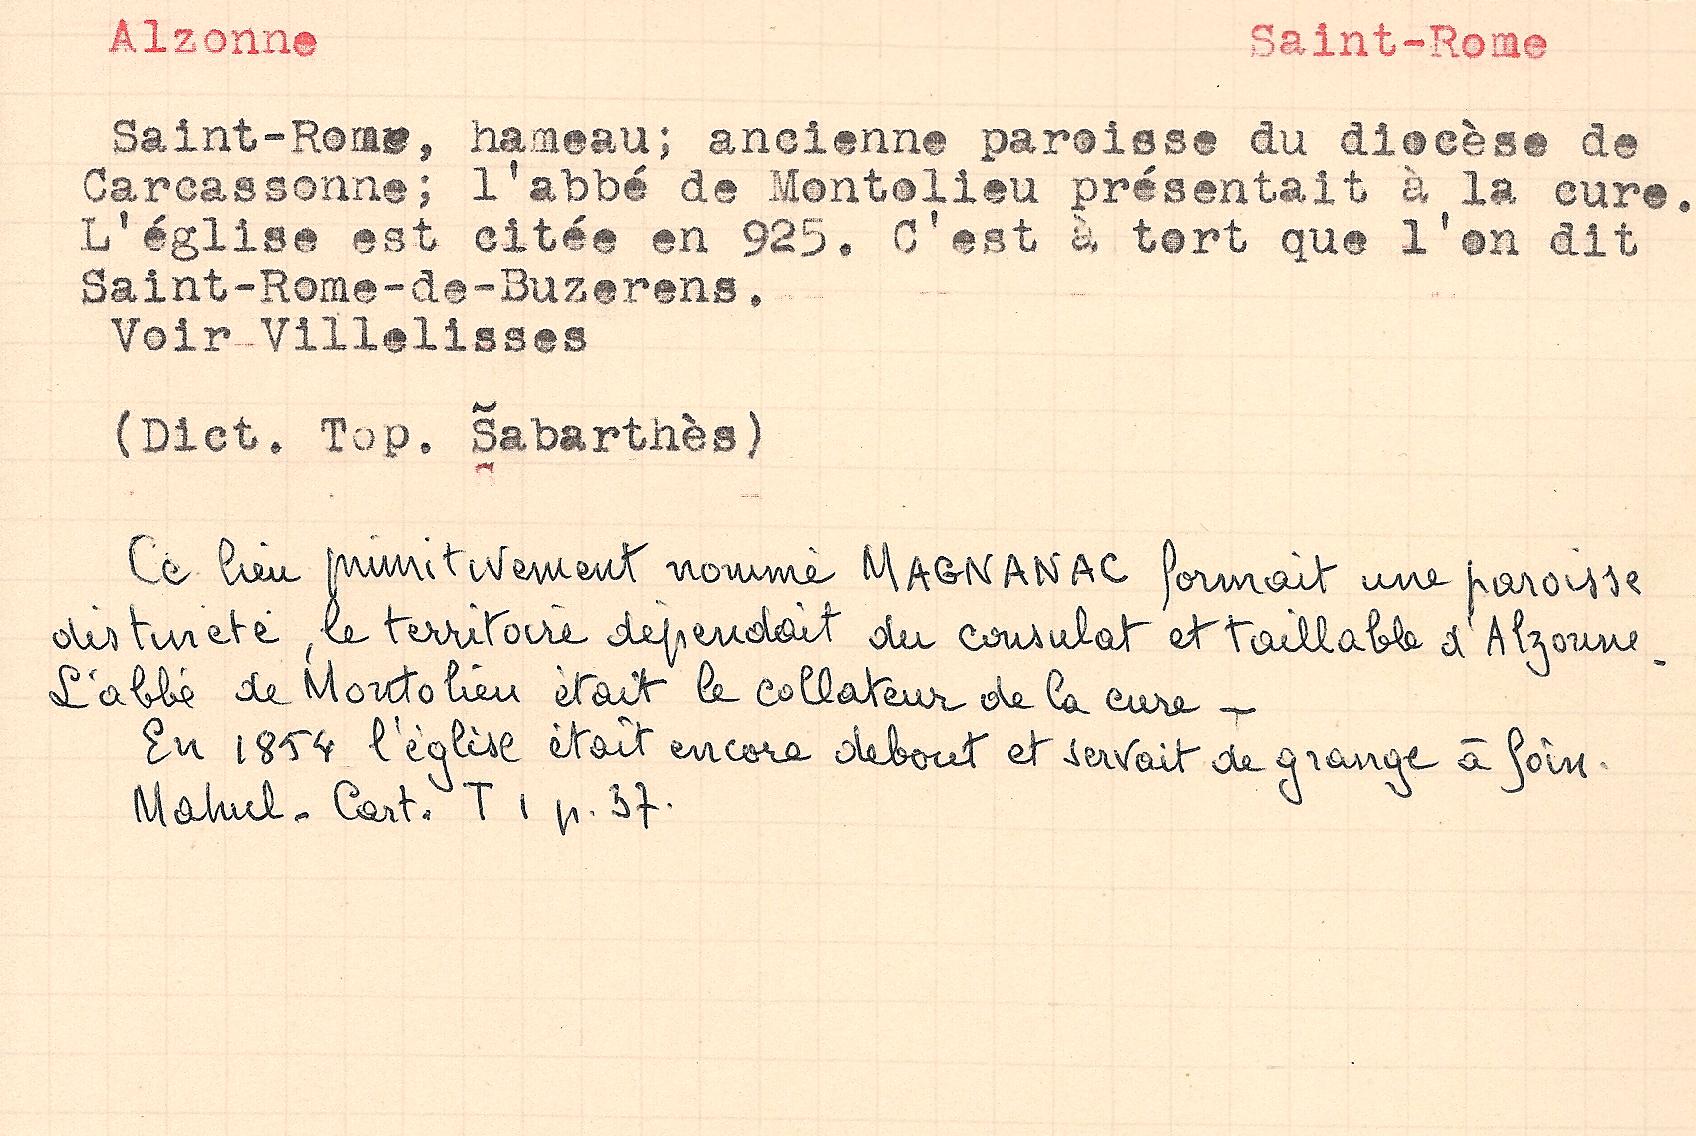 Alzonne Saint-Rome
Saint-Rome, hameau; ancienne paroisse du diocèse de
Carcassonne; l'abbé de Montolieu présentait à la cure.
L'église est citée en 925. C'est à tort que l'on dit
Saint-Rome-de-Buzerens.
Voir Villelisses
(Dict. Top. Sabarthès)
Ce lieu primitivement nommé MAGNANAC formait une paroisse
distincte, le territoire dépendait du consulat et taillable d'Alzonne.
L'abbé de Montolieu était le collateur de la cure -
En 1854 l'église était encore debout et servait de grange à foin.
Mahul. Cart. T 1 p. 37.